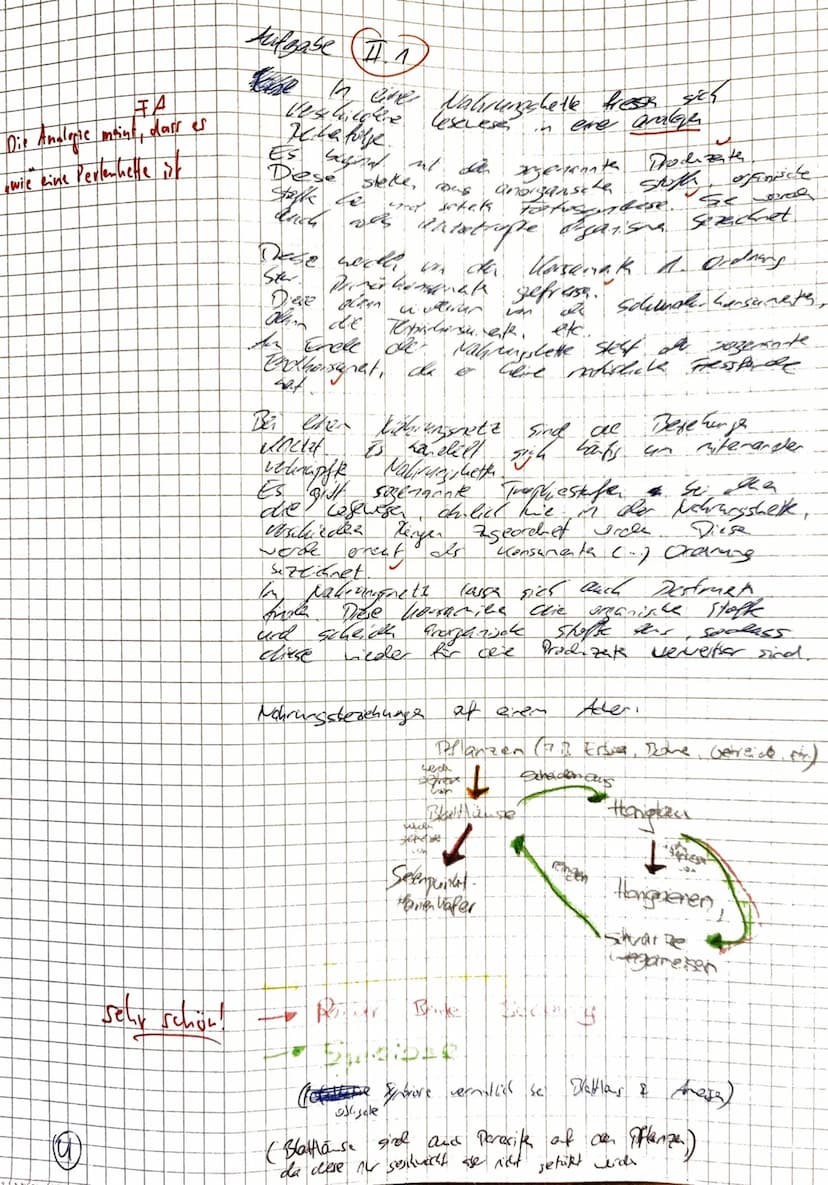 Aufgabe II.1
In einer Nahrungskette fressen sich
verschiedene Lebewesen in einer analogen
Reihenfolge.
FA
Die Analogie meint, dass es
"wie" eine Perlenkette ist
Es beginnt mit den sogenannten Produzenten.
Diese stellen aus anorganischen Stoffen, organische
Stoffe her und Fotosynthese. Sie werden
auch als Organismen bezeichnet
Diese werden von den Konsumenten 1. Ordnung
bzw. Primärkonsumenten gefressen.
Diese dann wiederum von den Sekundärkonsumenten,
dann die Tertiärkonsumenten, etc.
Am Ende der Nahrungskette steht der sogenannte
Endkonsument, da er keine natürlichen Fressfeinde
hat.
Bei einem Nahrungsnetz sind die Beziehungen
Es handelt sich häufig um miteinander
verknüpfte Nahrungsketten
Es gibt sogenannte Trophiestufen bei den
die Lebewesen, ähnlich wie in der Nahrungskette,
verschiedenen zugeordnet werden. Diese
werden erneut als Konsumenten (...) Ordnung
bezeichnet
Im Nahrungsnetz lassen sich auch Destruenten
finden. Diese konsumieren die organischen Stoffe
und scheiden anorganische Stoffe aus, sodass
diese wieder für die Produzenten verwertbar sind.
Nahrungsbeziehungen auf einem Acker:
Pflanzen (z.B. Erbse, Bohne, Getreide, etc.)
scheiden aus
Blattläuse
Honigtau
Siebenpunkt-
Marienkäfer
Honigbienen
schwarze
Wegameisen
sehr schön!
Räuber Beute Beziehung
Symbiose
(Symbiose vermutlich bei Blattlaus & Ameisen)
(Blattläuse sind auch Parasiten auf den Pflanzen)
da diese nur geschwächt aber nicht getötet werden